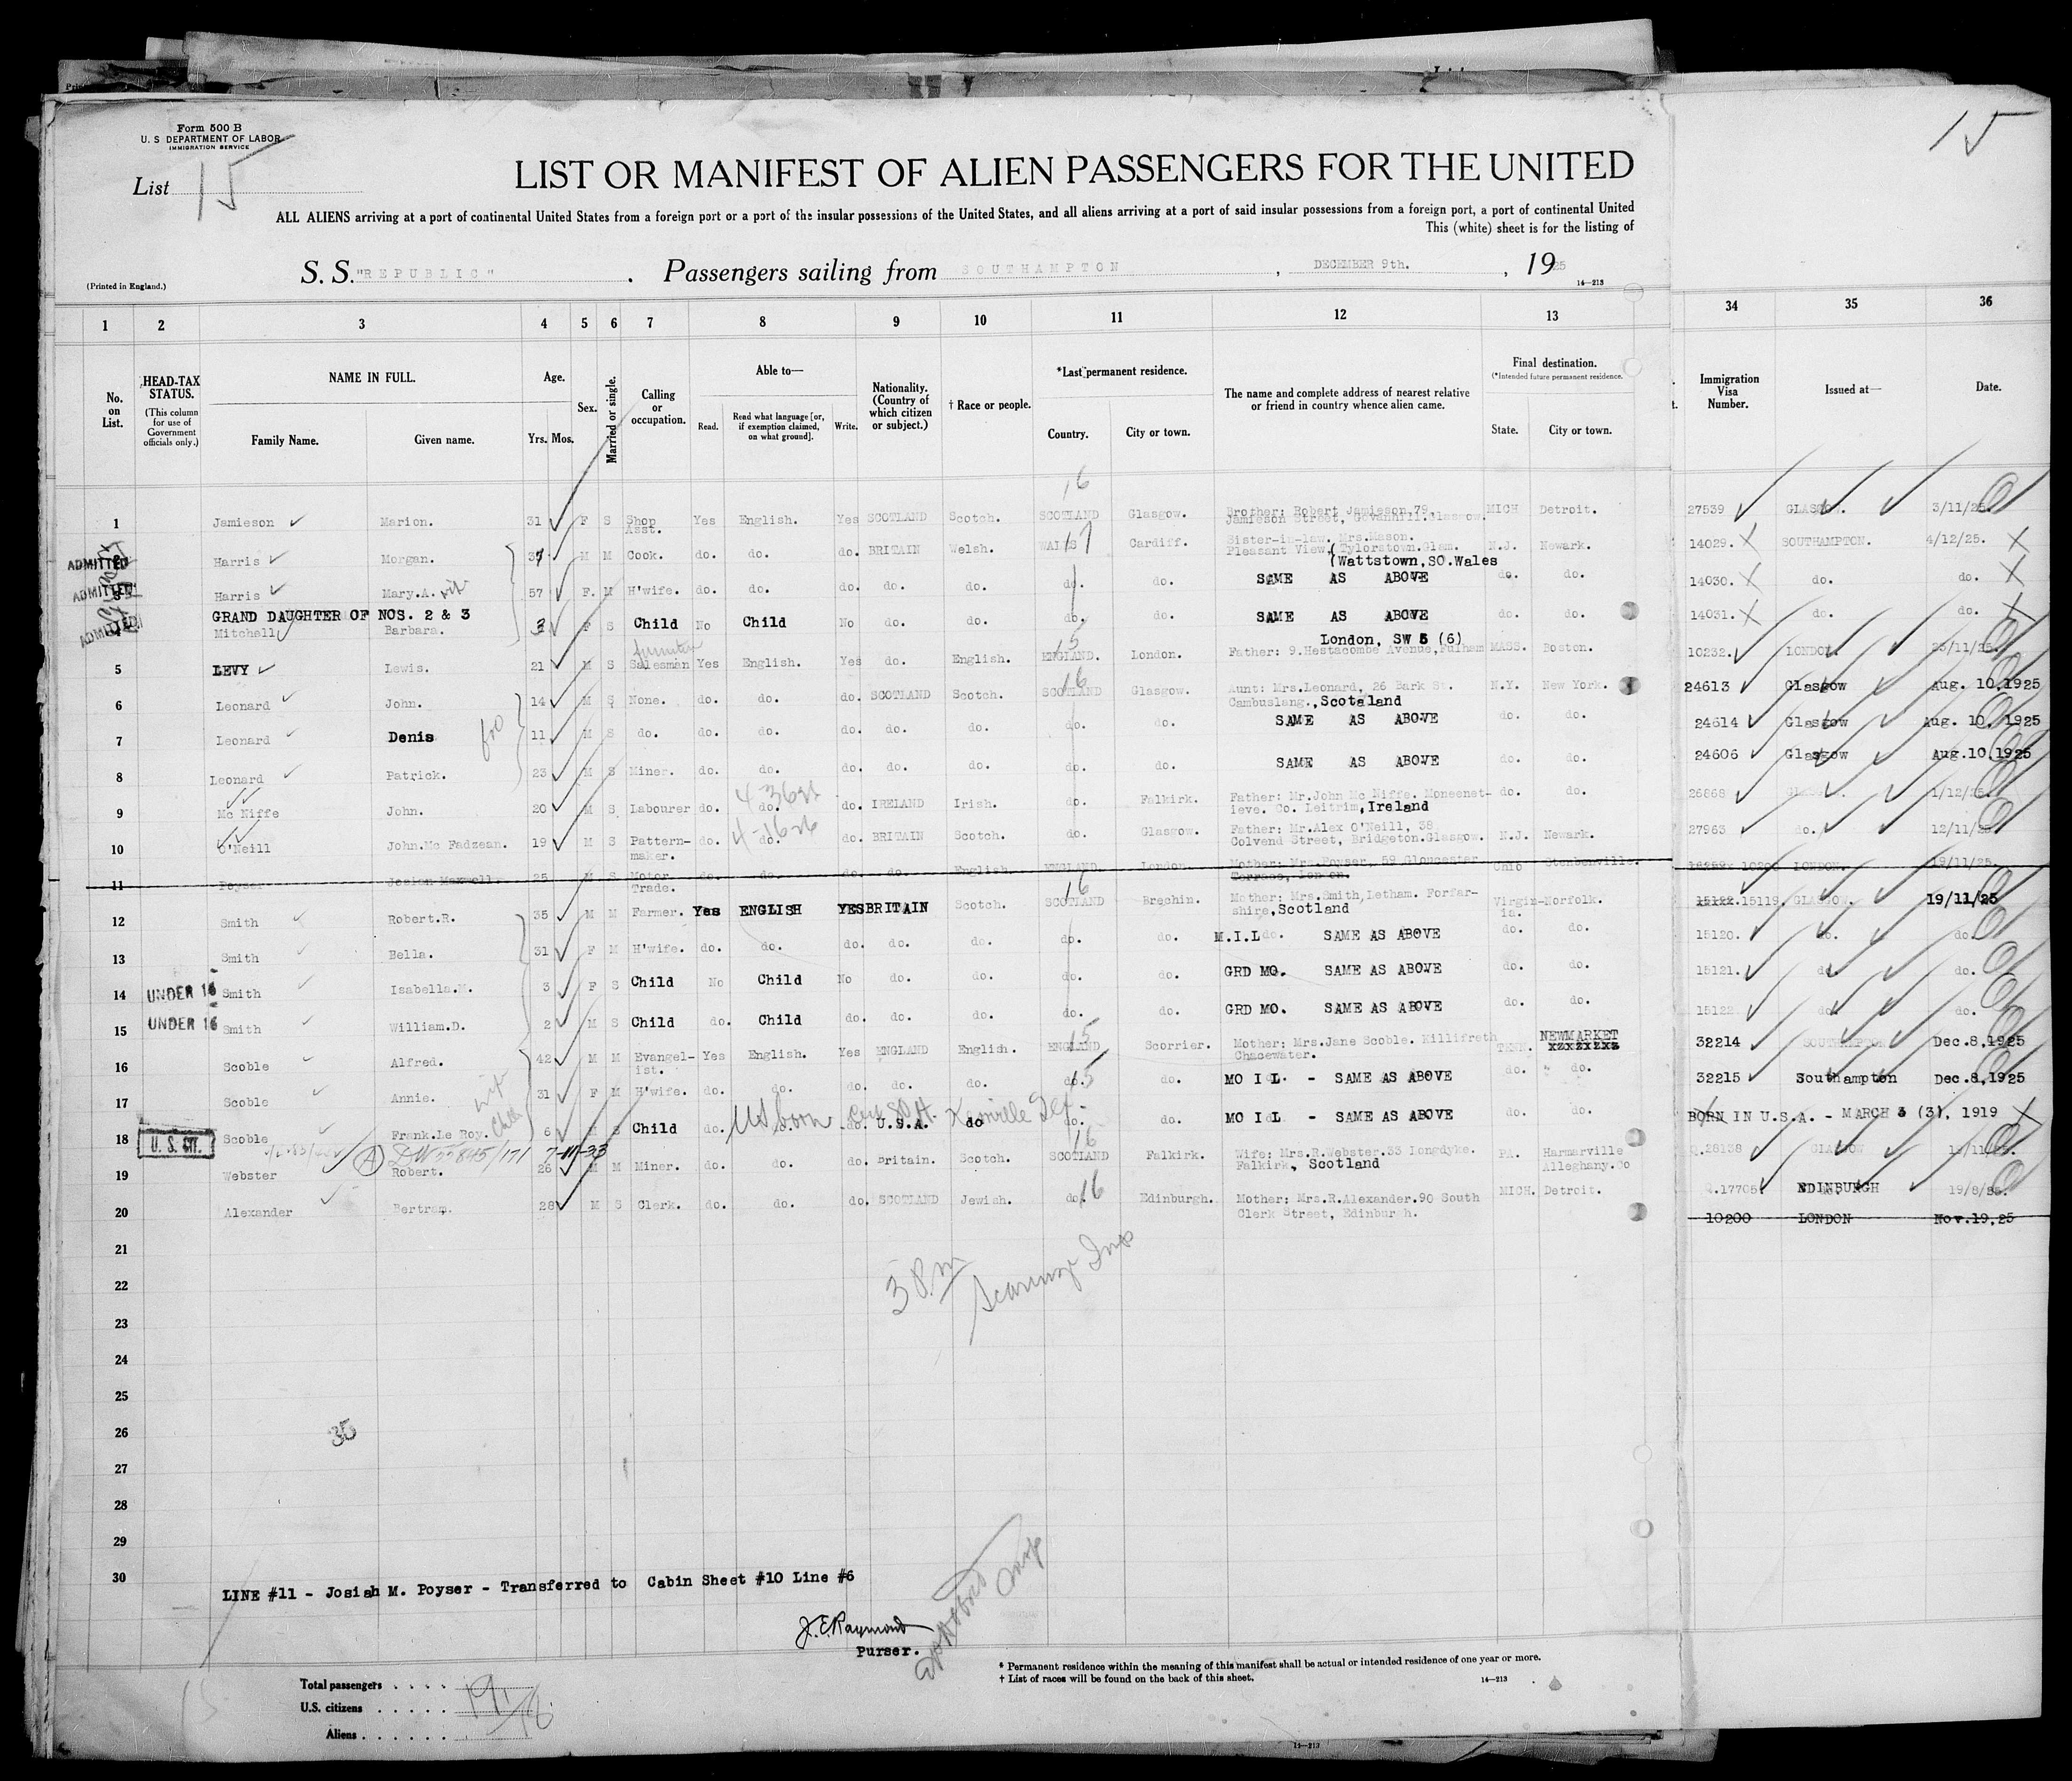 Form 500 B
U. S DEPARTMENT OF LABOR
IMMIGRATION SERVICE
List 15
15
LIST OR MANIFEST OF ALIEN PASSENGERS FOR THE UNITED
ALL ALIENS arriving at a port of continental United States from a foreign port or a port of the insular possessions of the United States, and all aliens arriving at a port of said insular possessions from a foreign port, a port of continental United
This (white) sheet is for the listing of
S. S. "REPUBLIC" . Passengers sailing from SOUTHAMPTON , DECEMBER 9th. , 1925
(Printed in England.)
14—213
1 2 3 4 5 6 7 8 9 10 11 12 13 34 35 36
No. on List.
HEAD-TAX STATUS.
(This column for use of Government officials only.)
NAME IN FULL.
Family Name. Given name.
Age.
Yrs. Mos.
Sex.
Married or single.
Calling or occupation.
Able to—
Read. Read what language [or, if exemption claimed, on what ground]. Write.
Nationality. (Country of which citizen or subject.)
† Race or people.
*Last permanent residence.
Country. City or town.
The name and complete address of nearest relative or friend in country whence alien came.
Final destination.
(*Intended future permanent residence.
State. City or town.
Immigration Visa Number.
Issued at—
Date.
16
1 Jamieson Marion. 31 F S Shop Asst. Yes English. Yes SCOTLAND Scotch. SCOTLAND Glasgow. Brother: Robert Jamieson,79, Jamieson Street, Govanhill.Glasgow. MICH Detroit. 27539 GLASGOW. 3/11/25.
17
ADMITTED Harris Morgan. M M Cook. do. do. do. BRITAIN Welsh. WALES Cardiff. Sister-in-law. Mrs.Mason. Pleasant View,(Tylorstown.Glam. N.J. Newark. 14029. SOUTHAMPTON. 4/12/25.
(Wattstown,SO.Wales
ADMITTED Harris Mary.A. 57 F. M H'wife. do. do. do. do. do. do. do. SAME AS ABOVE do. do. 14030. do. do.
GRAND DAUGHTER OF NOS. 2 & 3
ADMITTED Mitchell Barbara. F S Child No Child No do. do. do. do. SAME AS ABOVE do. do. 14031. do. do.
15
London, SW 6 (6)
5 LEVY Lewis. 21 M S Salesman Yes English. Yes do. English. ENGLAND. London. Father: 9.Hestacombe Avenue,Fulham MASS. Boston. 10232. LONDON. 23/11/25.
16
6 Leonard John. 14 M S None. do. do. do. SCOTLAND Scotch. SCOTLAND Glasgow. Aunt: Mrs.Leonard, 26 Bark St. Cambuslang.,Scotaland N.Y. New York. 24613 Glasgow Aug. 10,1925
7 Leonard Denis 11 M S do. do. do. do. do. do. do. do. SAME AS ABOVE do. do. 24614 Glasgow Aug. 10, 1925
8 Leonard Patrick. 23 M S Miner. do. do. do. do. do. do. do. SAME AS ABOVE do. do. 24606 Glasgow Aug.10,1925
9 Mc Niffe John. 20 M S Labourer do. do. do. IRELAND Irish. do. Falkirk. Father: Mr.John Mc Niffe. Moneenet- ieve. Co. Leitrim,Ireland do. do. 26868 GLASGOW 1/12/25.
10 O'Neill John.Mc Fadzean. 19 M S Pattern- maker. do. do. do. BRITAIN Scotch. do. Glasgow. Father: Mr.Alex O'Neill, 38 Colvend Street, Bridgeton.Glasgow. N.J. Newark. 27963 do. 12/11/25.
11 Poyser Josiah Maxwell. 25 M S Motor Trade. do. do. do. do. English. ENGLAND. London. Mother: Mrs.Poyser, 59 Gloucester Terrace, London. Ohio Steubenville. LONDON. 19/11/25.
16
12 Smith Robert.R. 35 M M Farmer. Yes ENGLISH YES BRITAIN Scotch. SCOTLAND Brechin. Mother: Mrs.Smith,Letham. Forfar- shire,Scotland Virgin- ia. Norfolk. 15122.15119. GLASGOW. 19/11/25
13 Smith Bella. 31 F M H'wife. do. do. do. do. do. do. do. M.I.L do. SAME AS ABOVE do. do. 15120. do. do.
14 UNDER 16 Smith Isabella.M. 3 F S Child No Child No do. do. do. do. GRD MO. SAME AS ABOVE do. do. 15121. do. do.
15 UNDER 16 Smith William.D. 2 M S Child do. Child do. do. do. do. do. GRD MO. SAME AS ABOVE do. do. 15122. do. do.
15
16 Scoble Alfred. 42 M M Evangel- ist. Yes English. Yes ENGLAND English. ENGLAND Scorrier. Mother: Mrs.Jane Scoble. Killifreth Chacewater. TENN. NEWMARKET 32214 SOUTHAMPTON Dec.8,1925
15
17 Scoble Annie. 31 F M H'wife. do. do. do. do. do. do. do. MO I L - SAME AS ABOVE do. do. 32215 Southampton Dec.8,1925
18 U. S. CIT. Scoble Frank.Le Roy. 6 M S Child do. US born do. U.S.A. do do. do. MO I L - SAME AS ABOVE do. do. BORN IN U.S.A. - MARCH 3 (3), 1919
16
19 Webster Robert. 26 M M Miner. do. do. do. Britain. Scotch. SCOTLAND Falkirk. Wife: Mrs.R.Webster.33 Longdyke. Falkirk, Scotland PA. Harmarville Alleghany.Co Q.28138 GLASGOW
16
20 Alexander Bertram. 28 M S Clerk. do. do. do. SCOTLAND Jewish. do. Edinburgh. Mother: Mrs.R.Alexander.90 South Clerk Street, Edinburgh. MICH. Detroit. Q.17705 EDINBURGH 19/8/25.
10200 LONDON Nov.19,25
21
22
23
24
25
26
27
28
29
30
35
LINE #11 - Josiah M. Poyser - Transferred to Cabin Sheet #10 Line #6
J.E.Raymond
Purser.
* Permanent residence within the meaning of this manifest shall be actual or intended residence of one year or more.
† List of races will be found on the back of this sheet.
14—213
Total passengers . . . . 19
U.S. citizens . . . . . 1
Aliens . . . . . . . 18
14—213